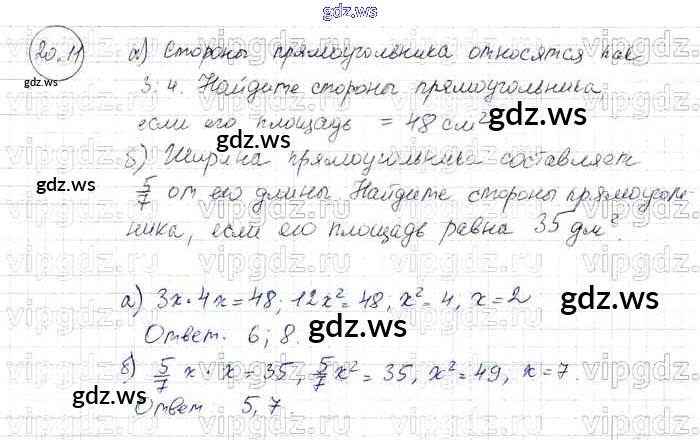 gdz.ws
20.11 а) Стороны прямоугольника относятся как
gdz.ws
3:4. Найдите стороны прямоугольника,
если его площадь = 48 см²
gdz.ws
gdz.ws
б) Ширина прямоугольника составляет
gdz.ws
5/7 от его длины. Найдите стороны прямоуголь-
ника, если его площадь равна 35 дм².
vipgdz.ru
а) 3x·4x=48; 12x²=48; x²=4, x=2
gdz.ws
Ответ. 6; 8.
gdz.ws
б) 5/7 x·x=35, 5/7 x²=35, x²=49, x=7.
gdz.ws
gdz.ws
Ответ 5,7.